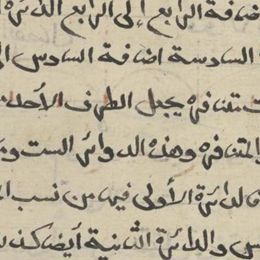 ضافة الرابع إلى الرابع الدائرة
السادسة اضافة السادس الى
متنافرة يجعل الطرف الأحد
والمتنافرة وهذه الدوائر الست
فالدائرة الأولى فيها من نسب
والدائرة الثانية أيضا كذلك